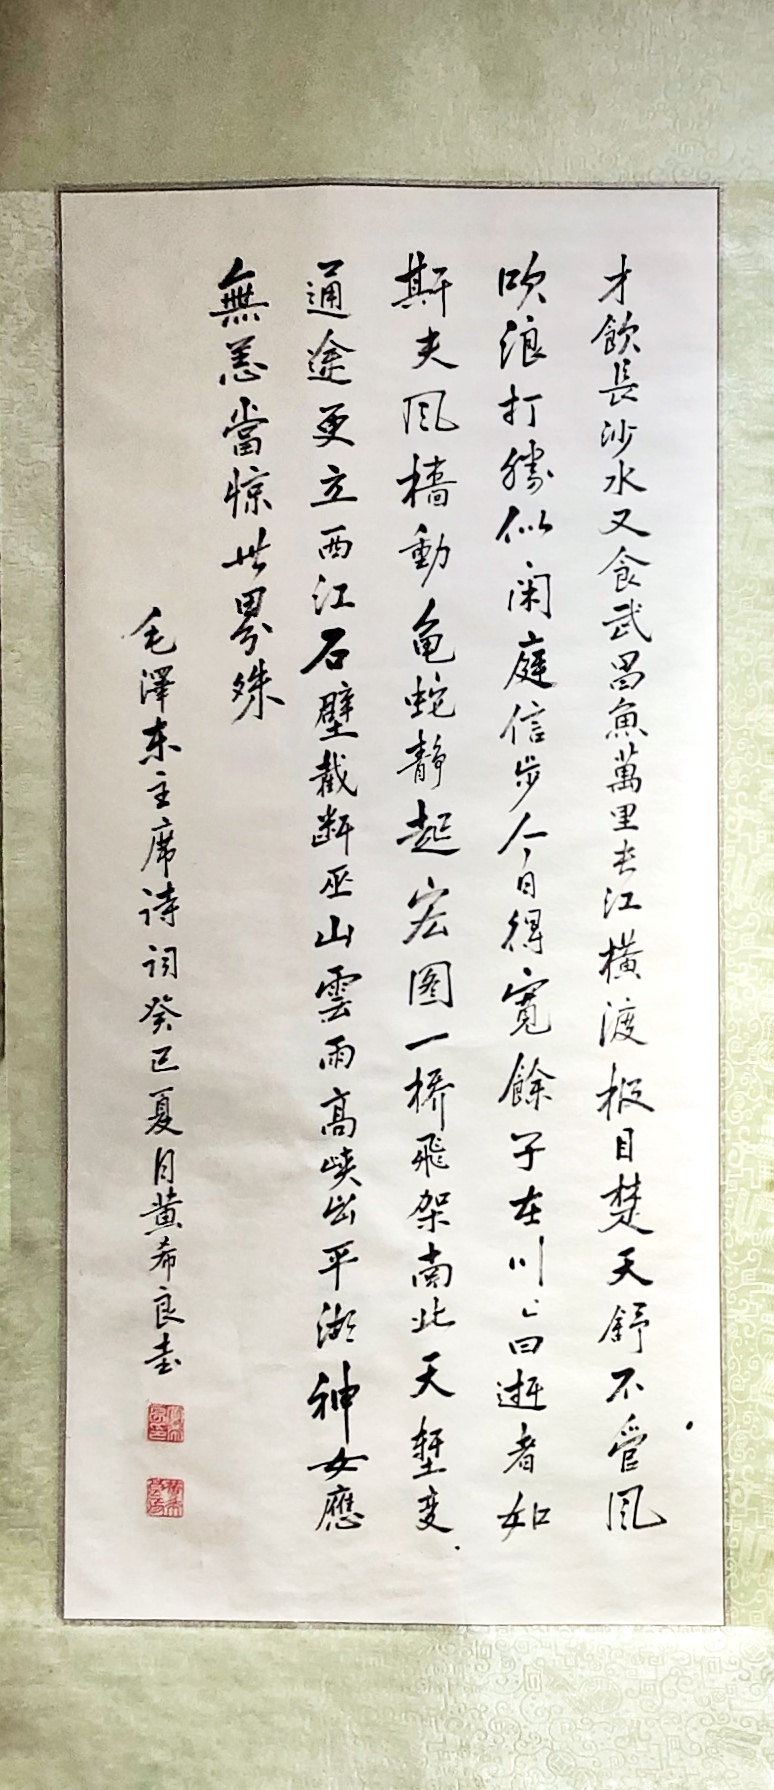 才飲長沙水又食武昌魚萬里长江橫渡极目楚天舒不管风
吹浪打勝似闲庭信步今日得寬餘子在川上曰逝者如
斯夫风檣動龟蛇靜起宏图一桥飛架南北天塹变
通途更立西江石壁截断巫山雲雨高峡出平湖神女應
無恙當惊世界殊
毛澤东主席诗词癸巳夏月黄希良书